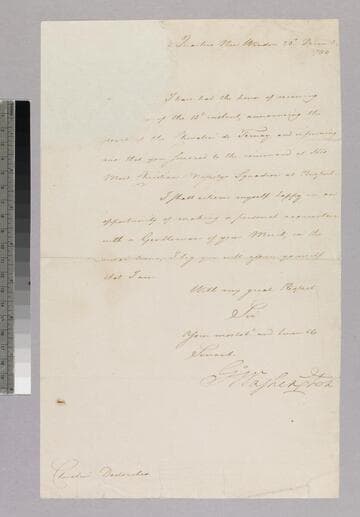 Quarters New Windsor 22d Decem
1780
I have had the honor of receiving
of the 15th instant, announcing the
of the Chevalier de Ternay and informing
me that you succeed to the command of His
Most Christian Majestys Squadron at Newport.
I shall esteem myself happy in an
opportunity of making a personal acquaintance
with a Gentleman of your Merit, in the
mean time, I beg you will assure yourself
that I am
With very great Respect
Sir
Your most obt and hum ble
Servant
Go Washington
Chevalier Destouches